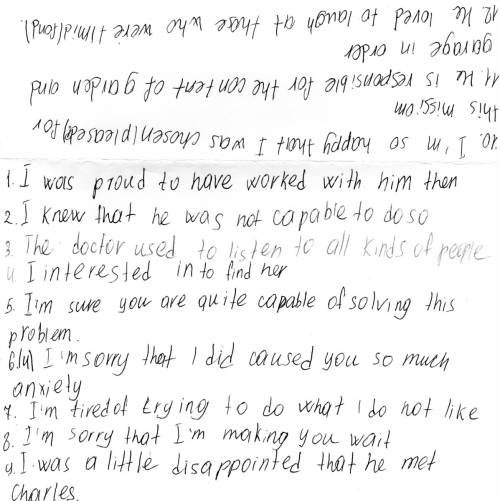 1. I was proud to have worked with him then
2. I knew that he was not capable to do so
3. The doctor used to listen to all kinds of people
4. I interested in to find her
5. I'm sure you are quite capable of solving this
problem.
6.(4) I'm sorry that I did caused you so much
anxiety
7. I'm tired of trying to do what I do not like
8. I'm sorry that I'm making you wait
9. I was a little disappointed that he met
Charles.
10. I'm so happy that I was chosen (pleased) for
this mission
11. He is responsible for the content of garden and
garage in order
12. He loved to laugh at those who were timid (fond).